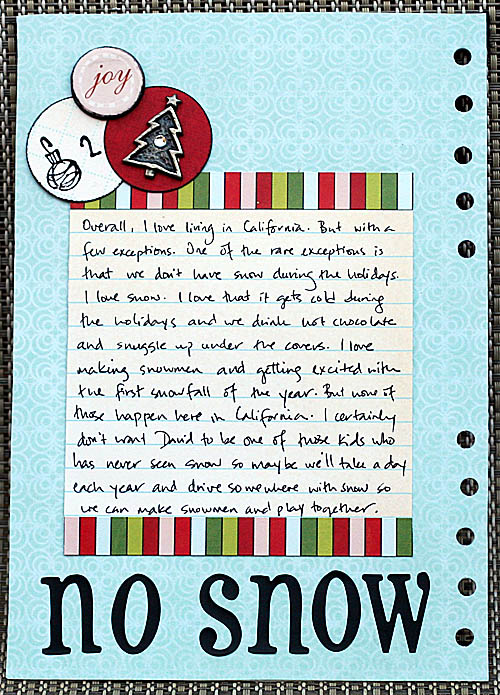 joy
2
Overall, I love living in California. But with a
few exceptions. One of the rare exceptions is
that we don't have snow during the holidays.
I love snow. I love that it gets cold during
the holidays and we drink hot chocolate
and snuggle up under the covers. I love
making snowmen and getting excited with
the first snowfall of the year. But none of
those happen here in California. I certainly
don't want David to be one of those kids who
has never seen snow so maybe we'll take a day
each year and drive somewhere with snow so
we can make snowmen and play together.
no snow